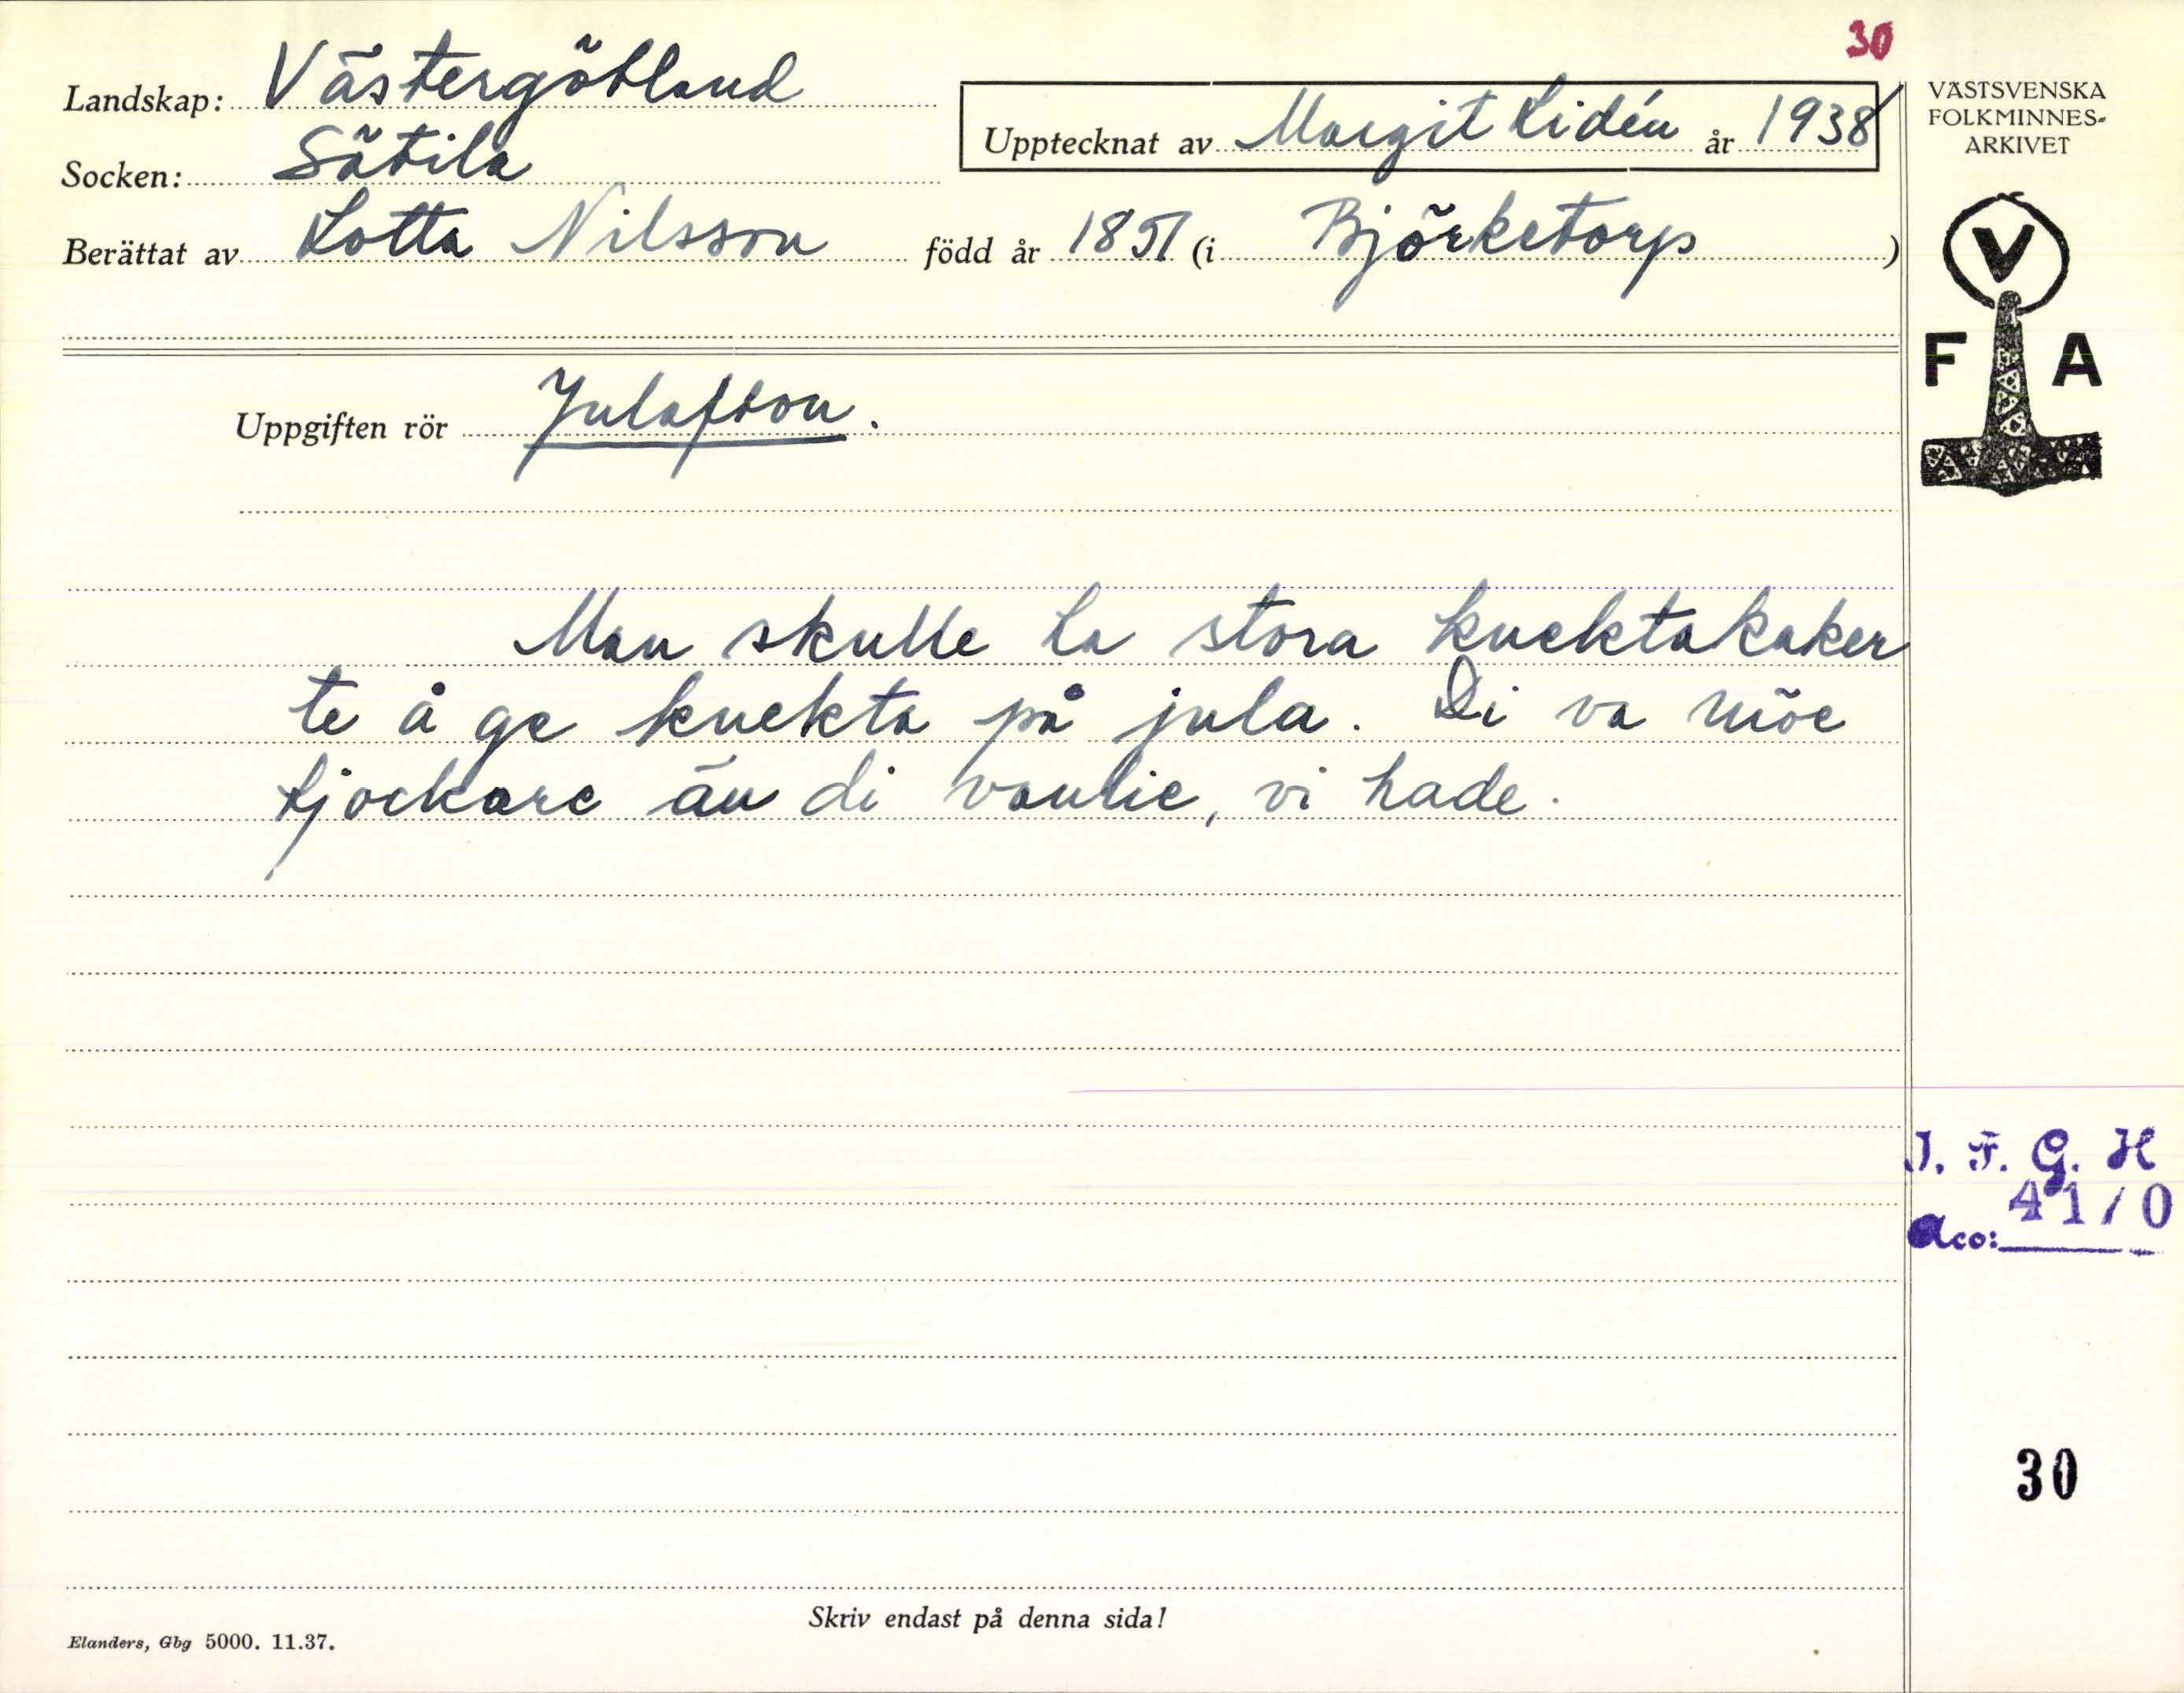 30
Landskap: Västergötland
Socken: Sätila
Berättat av Lotta Nilsson född år 1851 (i Björketorp)
Upptecknat av Margit Lidén år 1938
VÄSTSVENSKA
FOLKMINNES-
ARKIVET
V
F A
Uppgiften rör Julafton.
Man skulle ta stora knektakaker
te å ge knekta på jula. Di va möe
tjockare än di vanlie, vi hade.
I. F. G. H
Acc: 4170
30
Skriv endast på denna sida!
Elanders, Gbg 5000. 11.37.